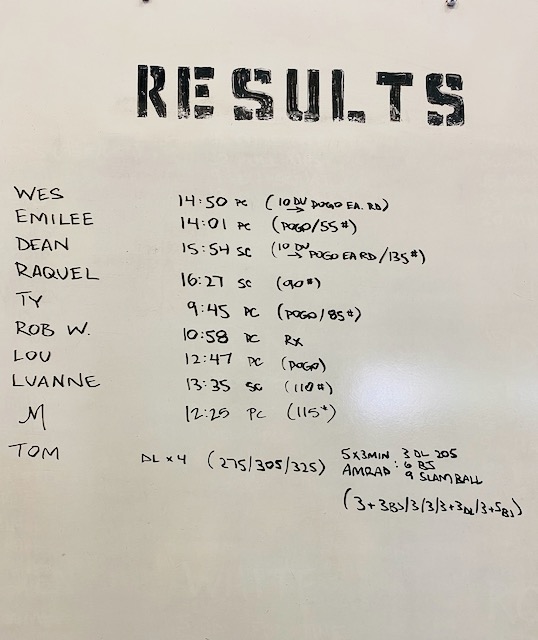 RESULTS
WES 14:50 PC (10 DU → POGO EA. RD)
EMILEE 14:01 PC (POGO/55#)
DEAN 15:54 SC (10 DU → POGO EA RD/135#)
RAQUEL 16:27 SC (90#)
TY 9:45 PC (POGO/85#)
ROB W. 10:58 PC RX
LOU 12:47 PC (POGO)
LUANNE 13:35 SC (110#)
M 12:25 PC (115#)
TOM DL x 4 (275/305/325) 5X3MIN 3 DL 205
AMRAP: 6 BJ
9 SLAMBALL
(3+3BJ/3/3/3+3DL/3+5BJ)